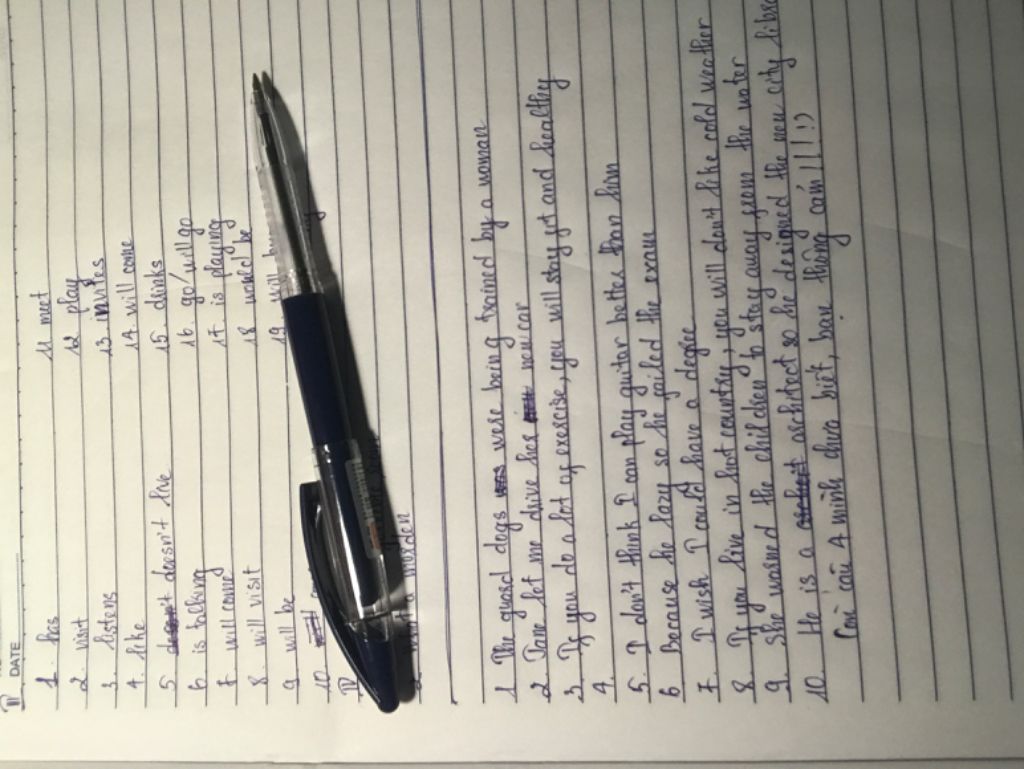 II DATE
1. has
2. visit
3. listens
4. like
5. doesn't live
6. is talking
7. will come
8. will visit
9. will be
10.
11 meet
12 play
13. invites
14. will come
15. drinks
16. go/will go
17. is playing
18 would be
19 will
1 The guard dogs were being trained by a woman
2. Jane let me drive her new car
3. If you do a lot of exercise, you will stay fit and healthy
4.
5. I don't think I can play guitar better than him
6 Because he lazy so he failed the exam
7. I wish I could have a degree
8. If you live in hot country, you will don't like cold weather
9. She warned the children to stay away from the water
10. He is a architect so he designed the new city
Còn câu 4 mình chưa biết, bạn thông cảm !!!!:)